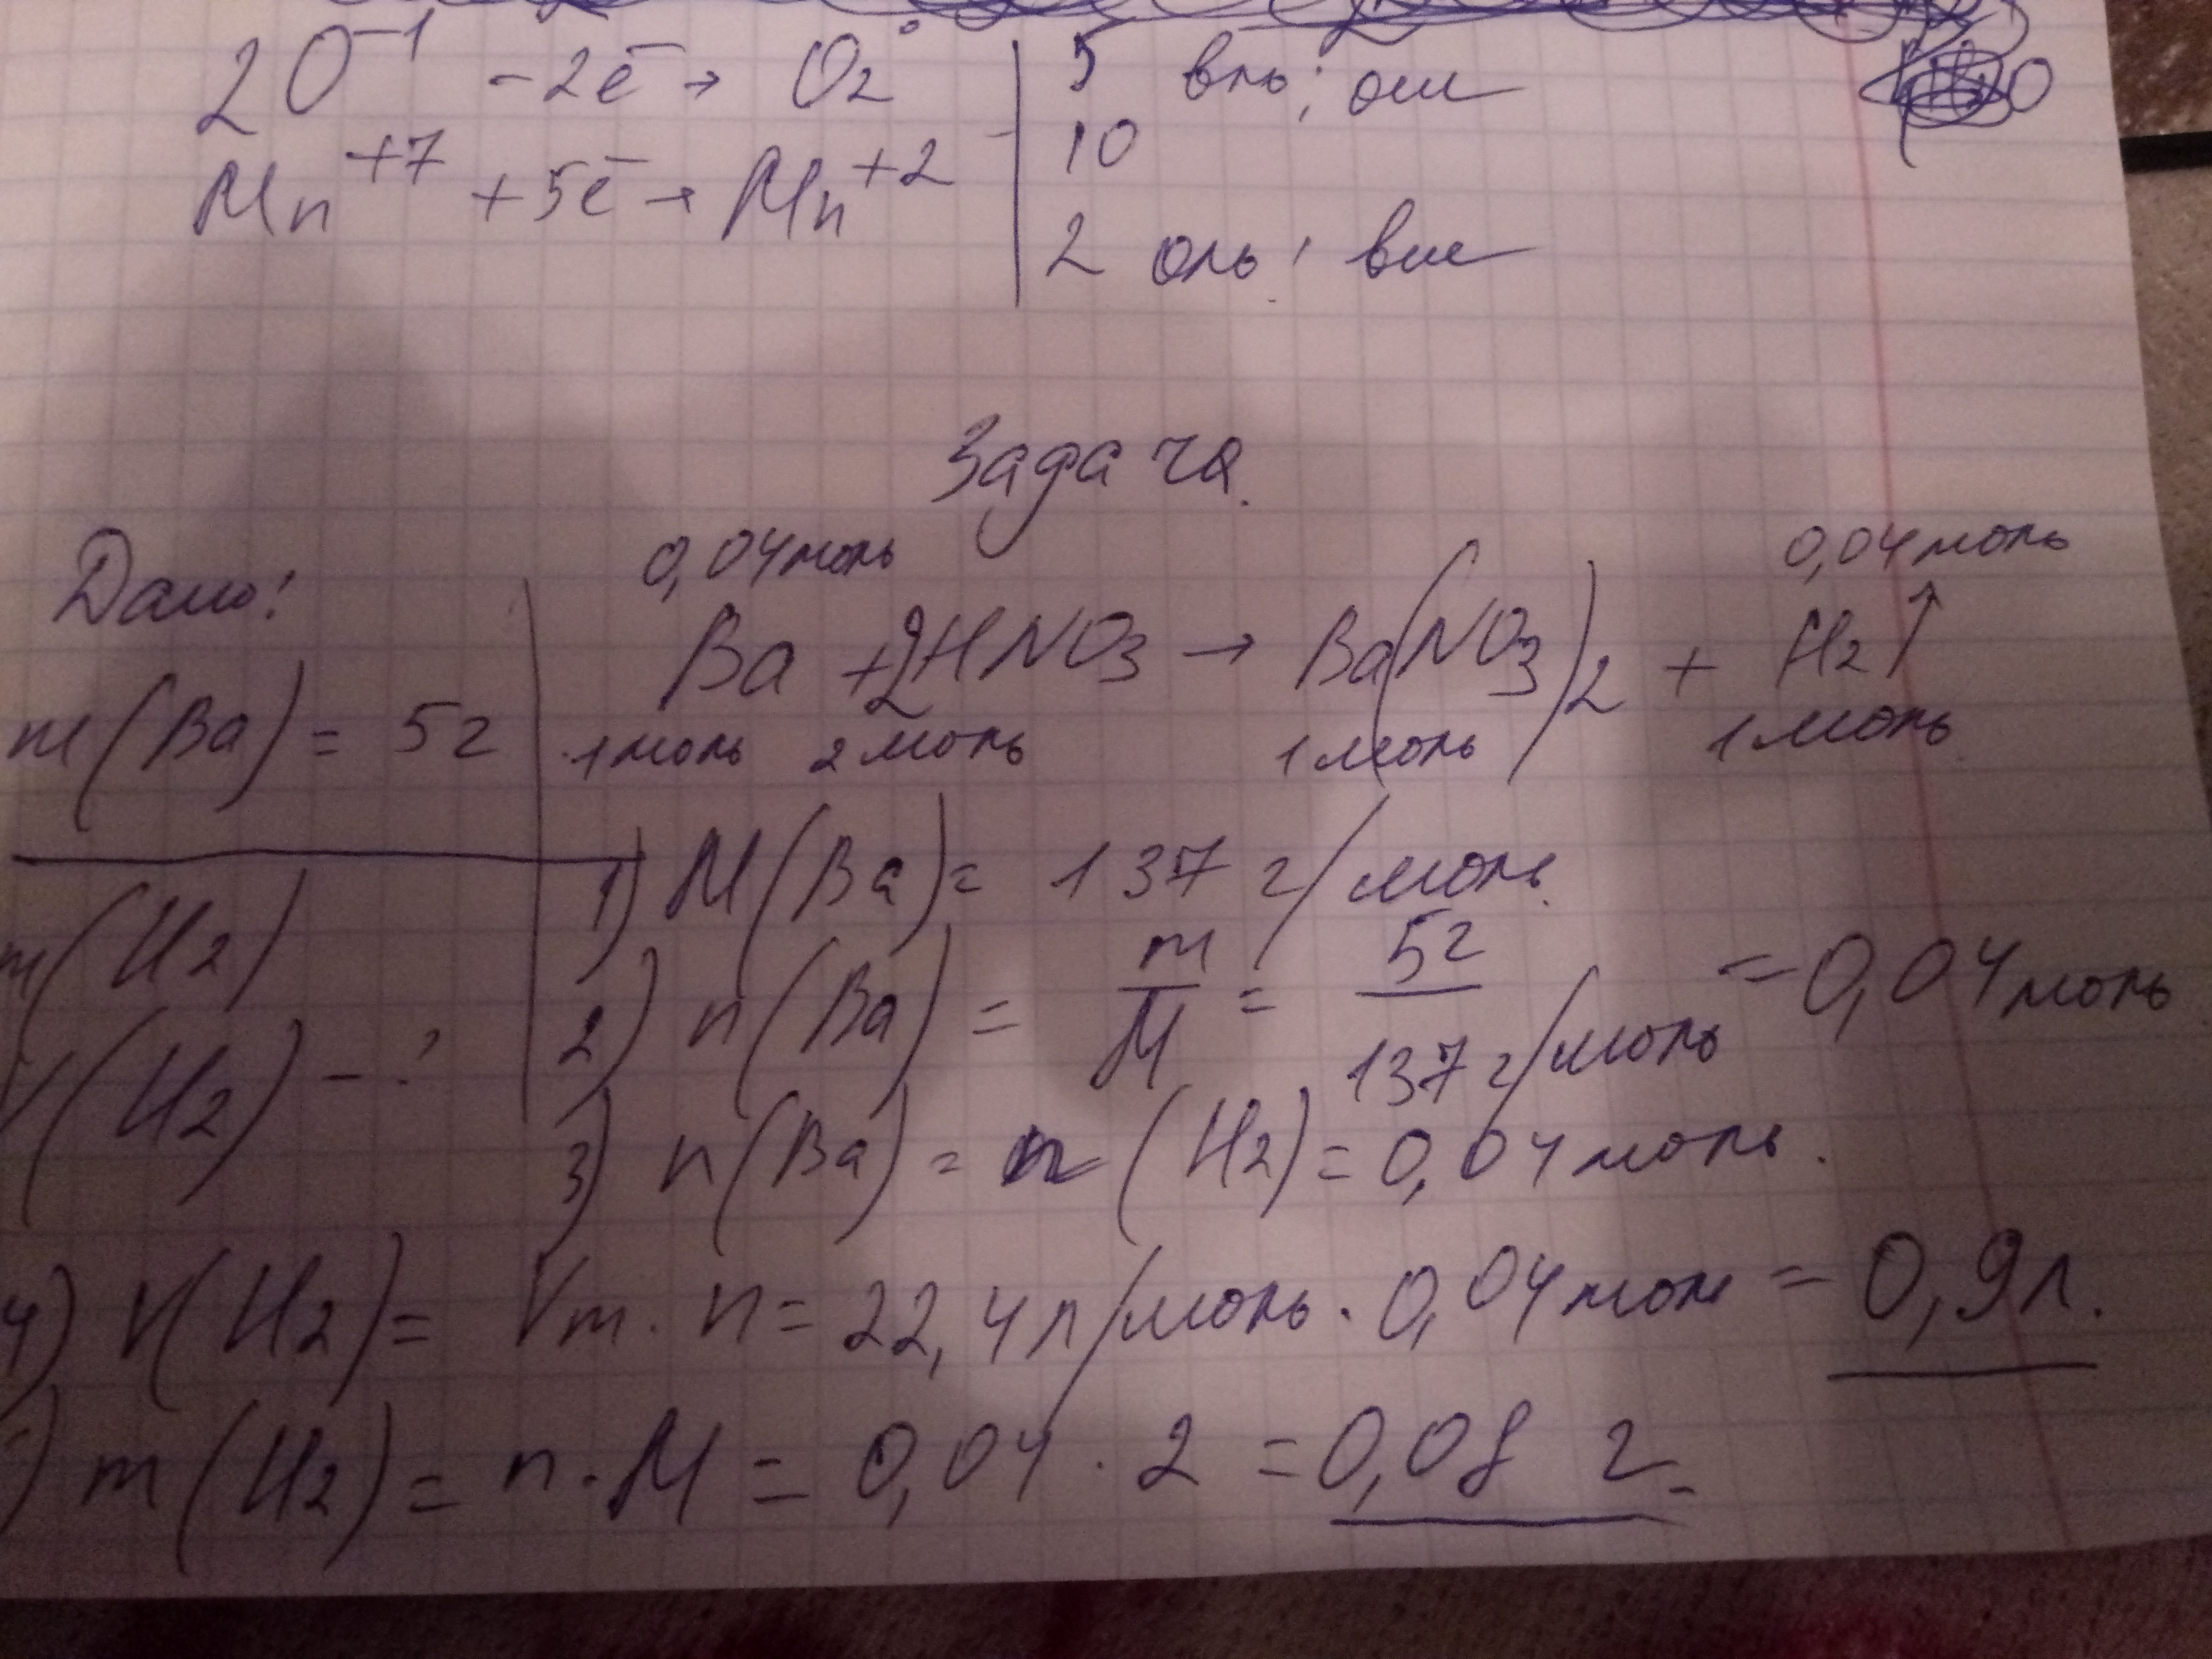 2O⁻¹ - 2ē → O₂⁰ | 5 вль; ош
10
Mn⁺⁷ + 5ē → Mn⁺² | 2 оль; вш
Задача.
Дано:
0,04моль 0,04моль
Ba + 2HNO₃ → Ba(NO₃)₂ + H₂↑
m(Ba) = 5г
1моль 2моль 1моль 1моль
1) M(Ba) = 137 г/моль.
m(H₂)
2) n(Ba) = m/M = 5г/137 г/моль = 0,04моль
V(H₂) - ?
3) n(Ba) = n(H₂) = 0,04моль.
4) V(H₂) = Vm · n = 22,4л/моль · 0,04моль = 0,9л.
) m(H₂) = n · M = 0,04 · 2 = 0,08 г.